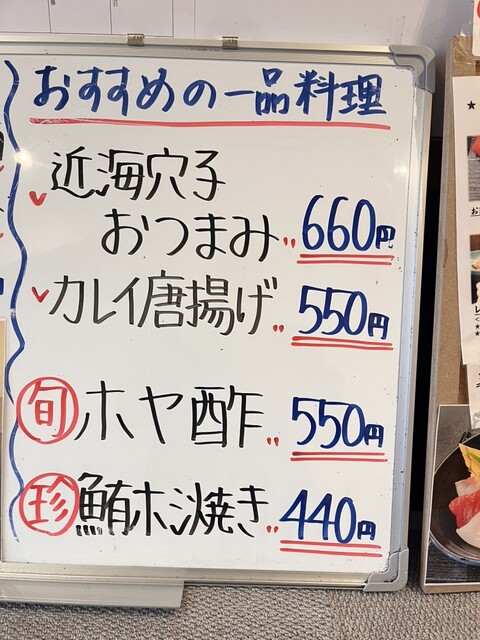 おすすめの一品料理
近海穴子
おつまみ 660円
カレイ唐揚げ 550円
旬 ホヤ酢 550円
珍 鮪ホシ焼き 440円